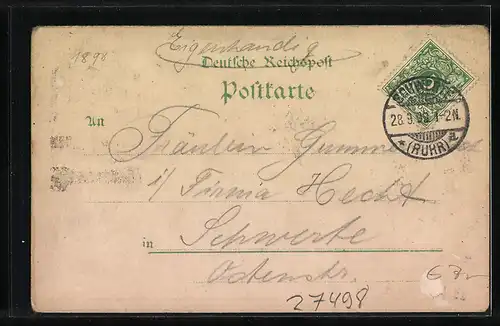 1898
Eigenhändig
Deutsche Reichspost
Postkarte
An
Fräulein
i/ Firma Hecht
in Schwerte
Ostenstr.
28.9.98. 1-2N.
* (RUHR) a.
27498